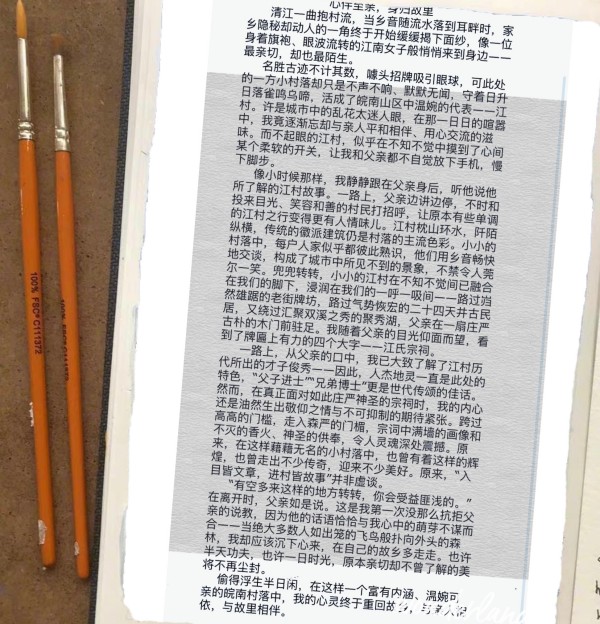 心伴至亲,身归故里
清江一曲抱村流,当乡音随流水落到耳畔时,家
乡隐秘却动人的一角终于开始缓缓揭下面纱,像一位
身着旗袍、眼波流转的江南女子般悄悄来到身边——
最亲切,却也最陌生。
名胜古迹不计其数,噱头招牌吸引眼球,可此处
的一方小村落却只是不声不响、默默无闻,守着日升
日落雀鸣乌啼,活成了皖南山区中温婉的代表——江
村。许是城市中的乱花太迷人眼,在那一日日的喧嚣
中,我竟逐渐忘却与亲人平和相伴、用心交流的滋
味。而不起眼的江村,似乎在不知不觉中摸到了心间
某个柔软的开关,让我和父亲都不自觉放下手机,慢
下脚步。
像小时候那样,我静静跟在父亲身后,听他说他
所了解的江村故事。一路上,父亲边讲边停,不时和
投来目光、笑容和善的村民打招呼,让原本有些单调
的江村之行变得更有人情味儿。江村枕山环水,阡陌
纵横,传统的徽派建筑仍是村落的主流色彩。小小的
村落中,每户人家似乎都彼此熟识,他们用乡音畅快
地交谈,构成了城市中所见不到的景象,不禁令人莞
尔一笑。兜兜转转,小小的江村在不知不觉间已融合
在我们的脚下,浸润在我们的一呼一吸间——路过岿
然雄踞的老街牌坊,路过气势恢宏的二十四天井古民
居,又绕过汇聚双溪之秀的聚秀湖,父亲在一扇庄严
古朴的木门前驻足。我随着父亲的目光仰面而望,看
到了牌匾上有力的四个大字——江氏宗祠。
一路上,从父亲的口中,我已大致了解了江村历
代所出的才子俊秀——因此,人杰地灵一直是此处的
特色,“父子进士”“兄弟博士”更是世代传颂的佳话。
然而,在真正面对如此庄严神圣的宗祠时,我的内心
还是油然生出敬仰之情与不可抑制的期待紧张。跨过
高高的门槛,走入森严的门楣,宗祠中满墙的画像和
不灭的香火、神圣的供奉,令人灵魂深处震撼。原
来,在这样藉藉无名的小村落中,也曾有着这样的辉
煌,也曾走出不少传奇,迎来不少美好。原来,“入
目皆文章,进村皆故事”并非虚谈。
“有空多来这样的地方转转,你会受益匪浅的。”
在离开时,父亲如是说。这是我第一次没那么抗拒父
亲的说教,因为他的话语恰恰与我心中的萌芽不谋而
合——当绝大多数人如出笼的飞鸟般扑向外头的森
林,我却应该沉下心来,在自己的故乡多走走。也许
半天功夫,也许一日时光,原本亲切却不曾了解的美
将不再尘封。
偷得浮生半日闲,在这样一个富有内涵、温婉可
亲的皖南村落中,我的心灵终于重回故
依,与故里相伴。
100% FSC® C111372